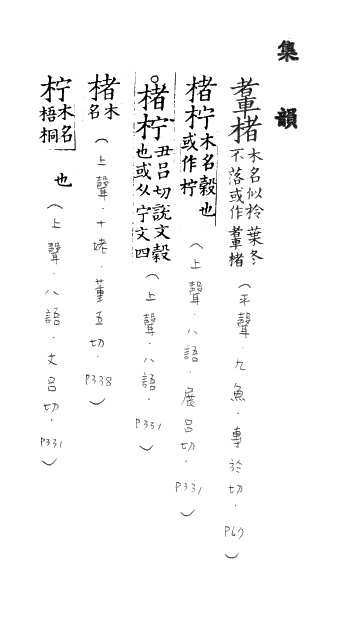 集韻
楮 木名似柃葉冬不落或作 楮(平聲.九魚.專於切.P67)
楮柠 木名榖也或作柠(上聲.八語.展呂切.P331)
楮柠 丑呂切說文榖也或从宁文四(上聲.八語.P331)
楮 木名(上聲.十姥.董五切.P338)
柠 木名梧桐也(上聲.八語.丈呂切.P331)